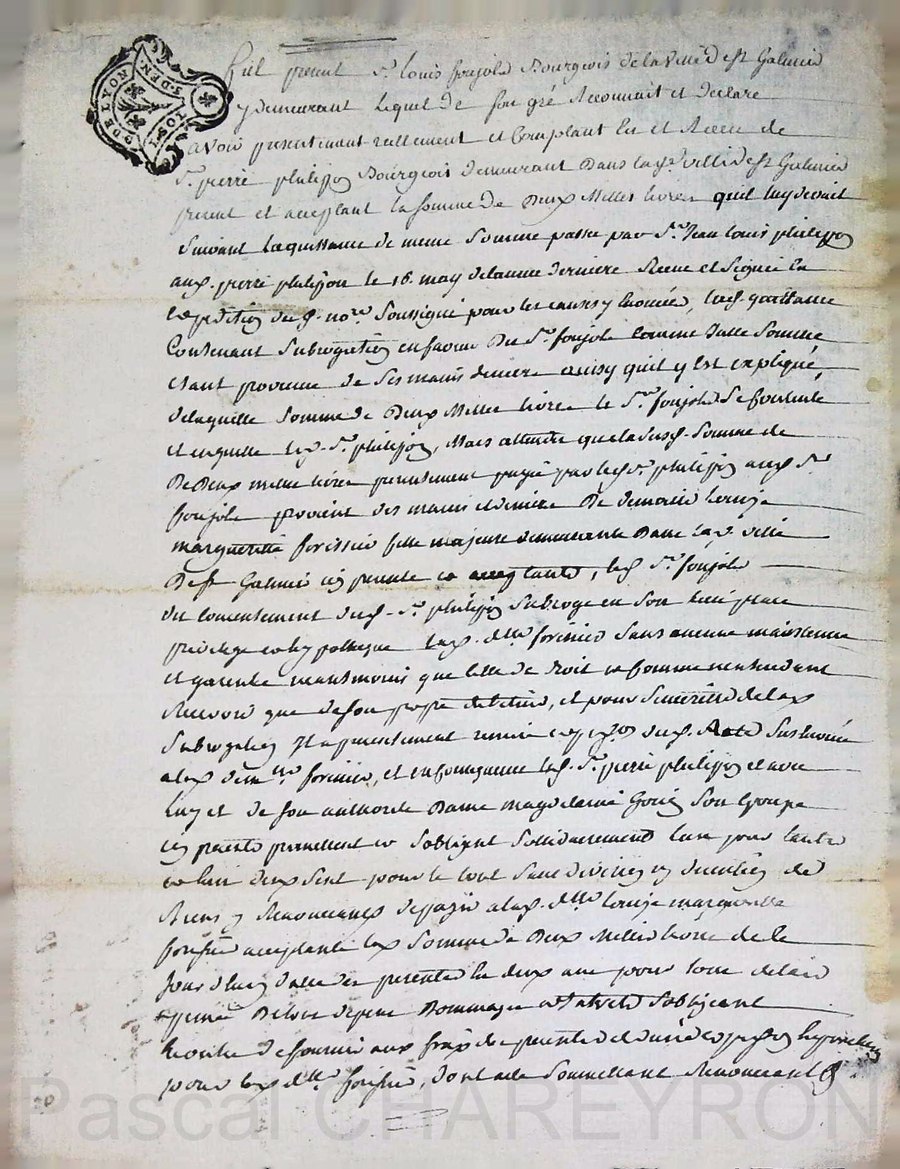 DE LYON
3. DEN.
fut present Sr. Louis foujols Bourgeois de la ville de st Galmier
y demeurant lequel de son gré Reconnait et declare
avoir presentement reellement et comptant eu et Receu de
Sr. pierre philippon Bourgeois demeurant dans lad. ville de st Galmier
present et acceptant la somme de Deux Milles livres quil luy devoit
Suivant la quittance de meme Somme passée par Sr. Jean Louis philippon
aud. pierre philippon le 16. may de lannée derniere Receue et Signée en
Expedition dud. nore. Soussigné pour les causes y enoncée, lad. quittance
Contenant Subrogation en faveur Du Sr. foujols comme dalle Somme
Etant provenue de Ses mains deniere ainsy quil y est expliqué,
delaquelle Somme de Deux Milles livres le Sr. foujols Se contente
et en quitte led. Sr. philippon, Mais attendu que la susd. Somme de
De Deux mille livres presentement payée par led. Sr. philippon aud. Sr.
foujols provient des mains et deniers De demoiselle Louise
margueritte forissier fille majeure demeurante Dans lad. ville
De st Galmier icy presente et acceptante, led. Sr. foujols
du consentement dud. Sr. philippon Subroge en Son lieu place
privilege et hypotheque lad. dlle forissier Sans aucune maintenue
et garentie neantmoins que celle de droit et comme n'entendant
Recevoir que de son propre debiteur, et pour Seureté de lad.
Subrogation Il a presentement remis Expedition dud. Acte Susenoncé
a lad. demlle forissier, et en consequence led. Sr. pierre philippon et avec
luy et de son authorité Dame magdelaine Son Epouse
icy presente promettent et Sobligent Solidairement lun pour lautre
et lun deux Seul pour le tout Sans division ny discution de
Biens y Renonceants de payer a lad. dlle Louise margueritte
forissier acceptante lad. Somme de Deux Milles livres de ce
Jour dhuy datte des presentes en deux ans pour tout delaid
a peine De tous depens Dommages et Interets Sobligeant
de fournir aux frais des presentes et dune expedition
pour lad. dlle forissier, dont acte Soumettant Renoncant &
Pascal CHAREYRON